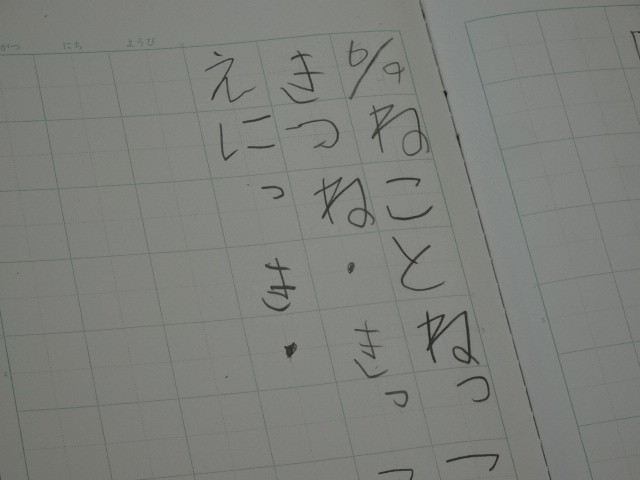 がつ にち ようび
6/9ねことねっ
きつね・きっ
えにっき・